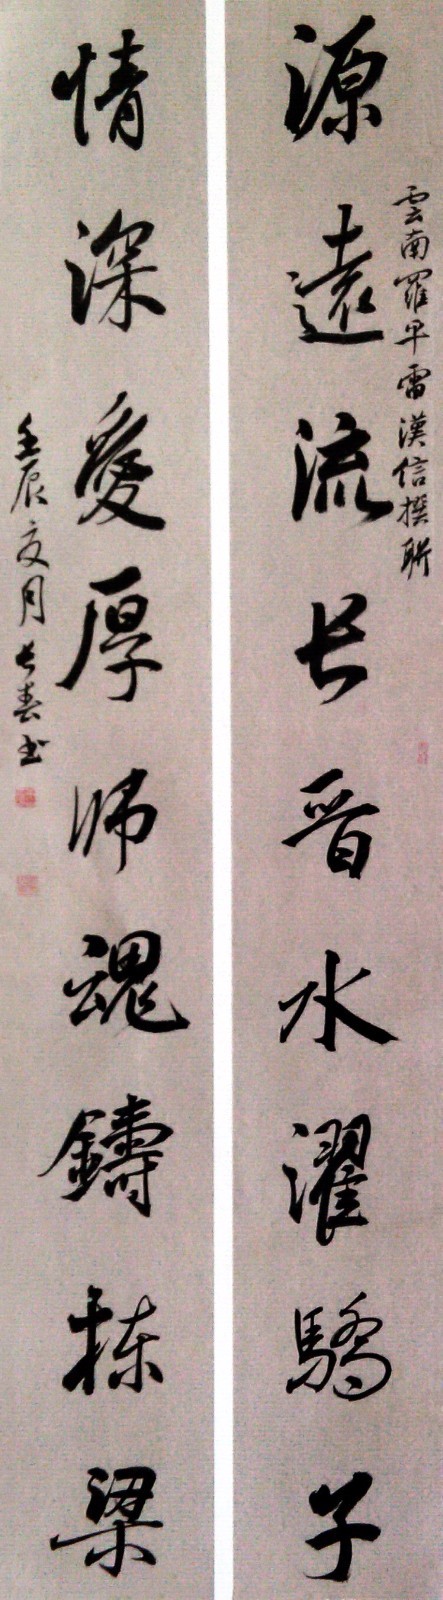 雲南羅平雷漢信撰聯
源遠流长晋水濯驕子
情深愛厚师魂鑄栋梁
壬辰文月长春书